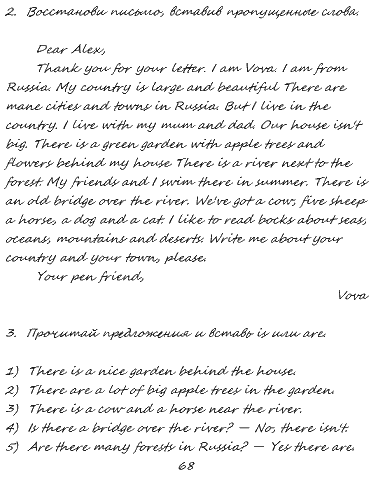 2. Восстанови письмо, вставив пропущенные слова.
Dear Alex,
Thank you for your letter. I am Vova. I am from
Russia. My country is large and beautiful There are
mane cities and towns in Russia. But I live in the
country. I live with my mum and dad. Our house isn't
big. There is a green garden with apple trees and
flowers behind my house There is a river next to the
forest. My friends and I swim there in summer. There is
an old bridge over the river. We've got a cow, five sheep
a horse, a dog and a cat. I like to read bocks about seas,
oceans, mountains and deserts. Write me about your
country and your town, please.
Your pen friend,
Vova
3. Прочитай предложения и вставь is или are.
1) There is a nice garden behind the house.
2) There are a lot of big apple trees in the garden.
3) There is a cow and a horse near the river.
4) Is there a bridge over the river? – No, there isn't.
5) Are there many forests in Russia? – Yes there are.
68